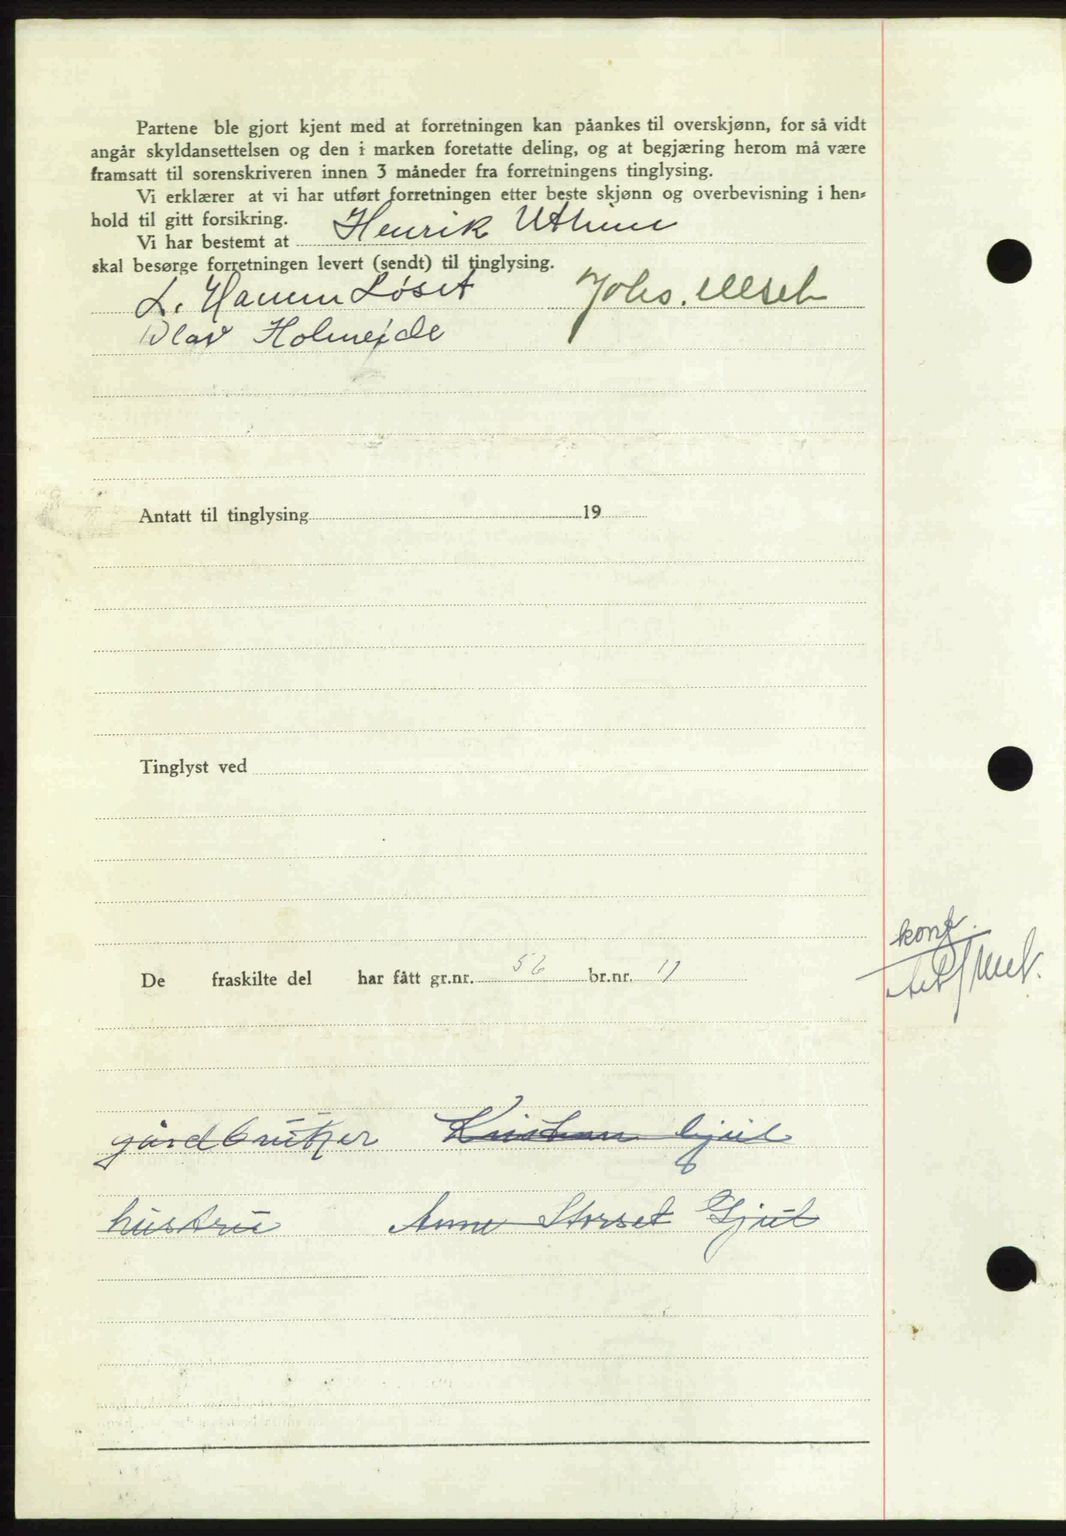 Partene ble gjort kjent med at forretningen kan påankes til overskjønn, for så vidt
angår skyldansettelsen og den i marken foretatte deling, og at begjæring herom må være
framsatt til sorenskriveren innen 3 måneder fra forretningens tinglysing.
Vi erklærer at vi har utført forretningen etter beste skjønn og overbevisning i hen-
hold til gitt forsikring.
Vi har bestemt at Henrik Utheim
skal besørge forretningen levert (sendt) til tinglysing.
L. Hamm Løset Johs.
Olav Holmeide
Antatt til tinglysing 19
Tinglyst ved
konf.
De fraskilte del har fått gr.nr. 56 br.nr. 17
gårdbruker Kristian Gjül
hustrü Anne Storset Gjül